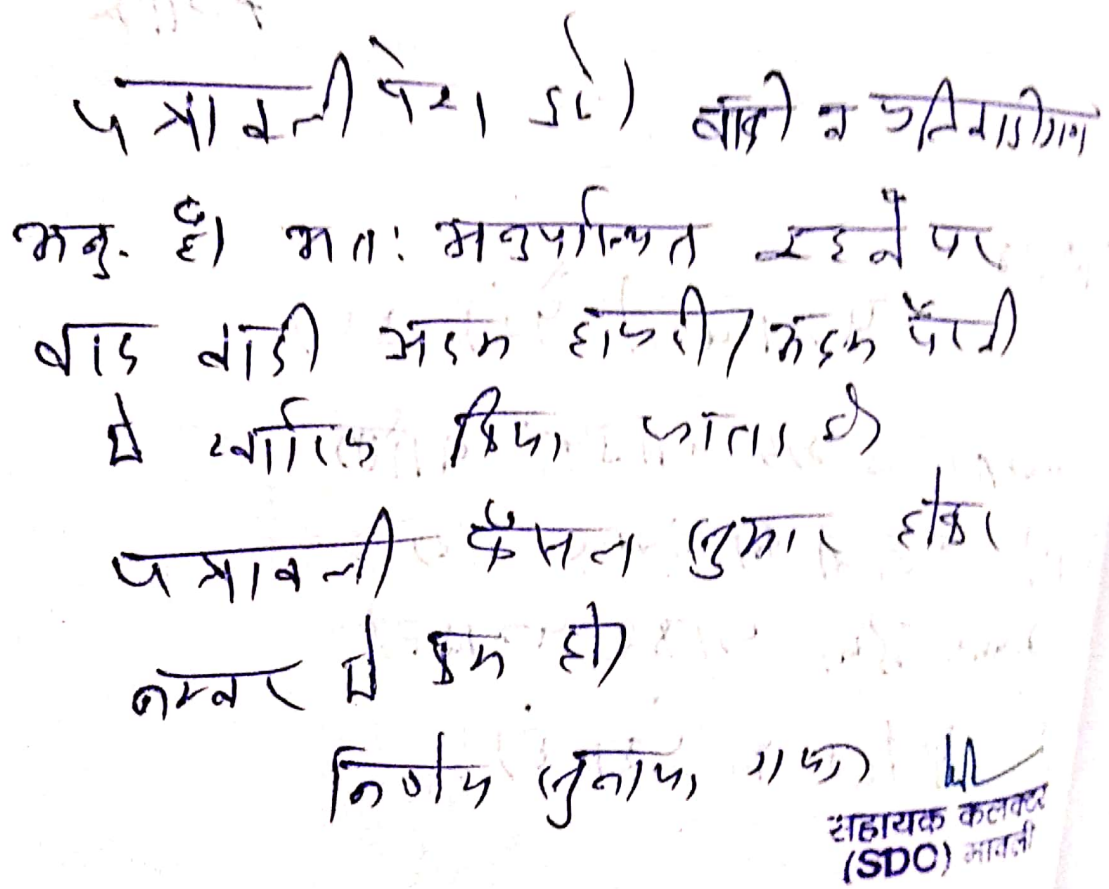 पत्रावली पेश हो। वादी व प्रतिवादीगण
अनु. है। अतः अनुपस्थित रहने पर
वाद वादी अदम हाजरी/अदम पैरवी
में खारिज किया जाता है।
पत्रावली फैसल शुमार होकर
नम्बर से कम हो।
निर्णय सुनाया गया।
सहायक कलक्टर
(SDO) मावली